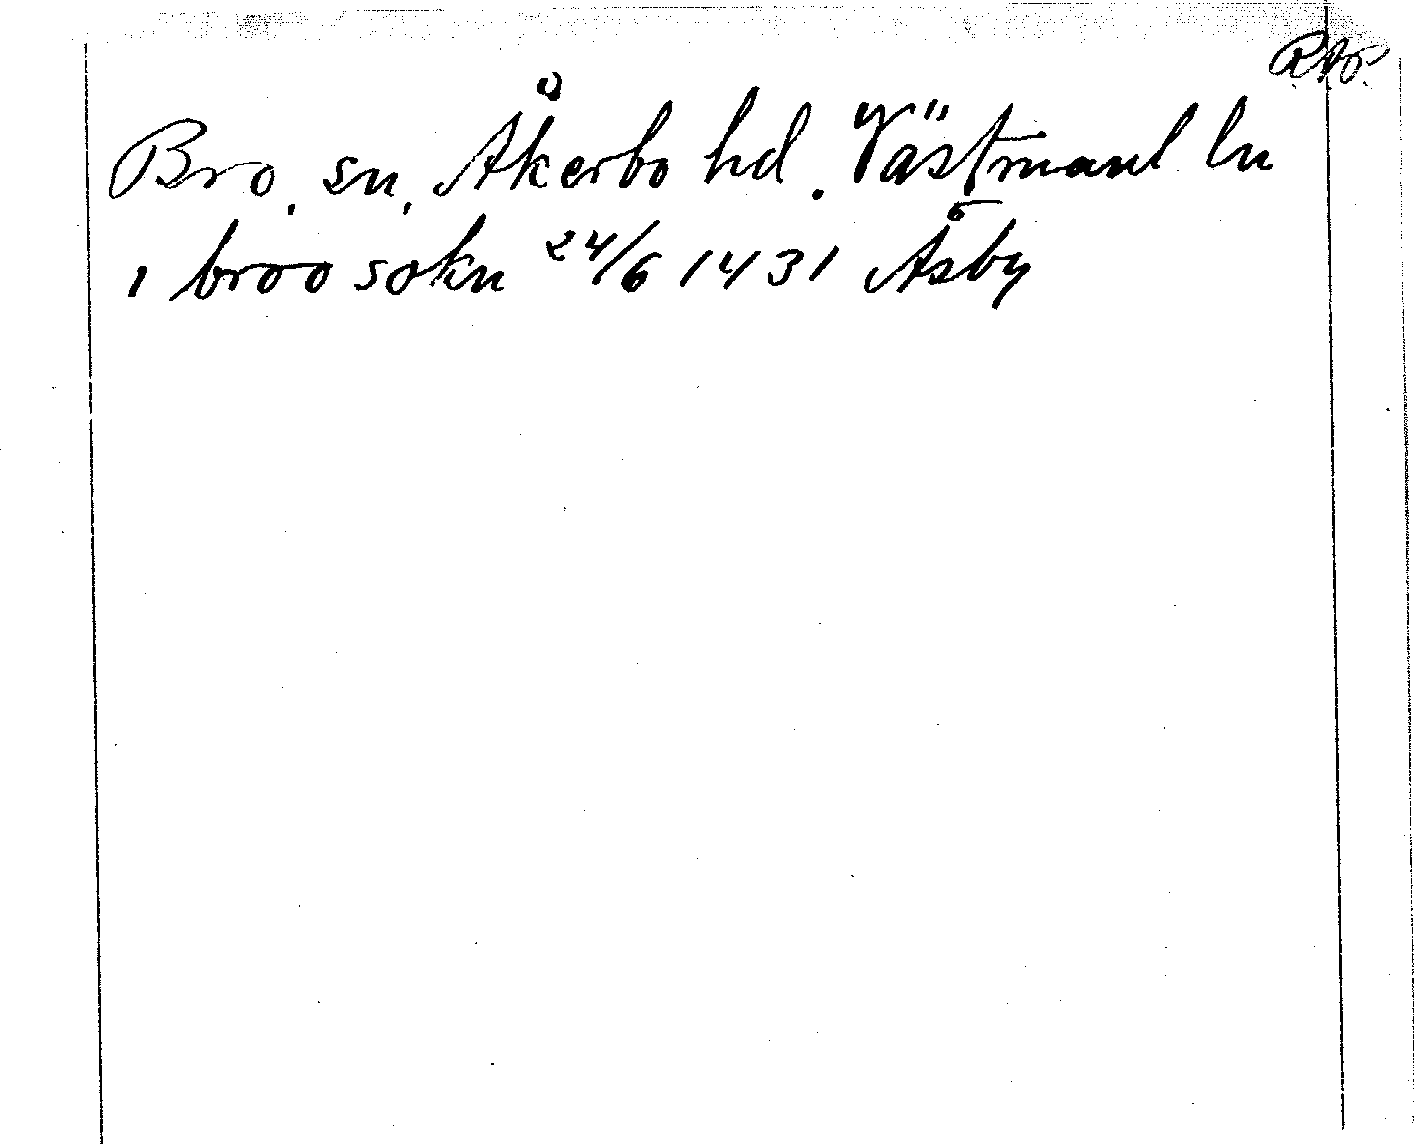 Bro. sn. Åkerbo hd. Västmanl ln
i broo sokn 24/6 1431 Åsby